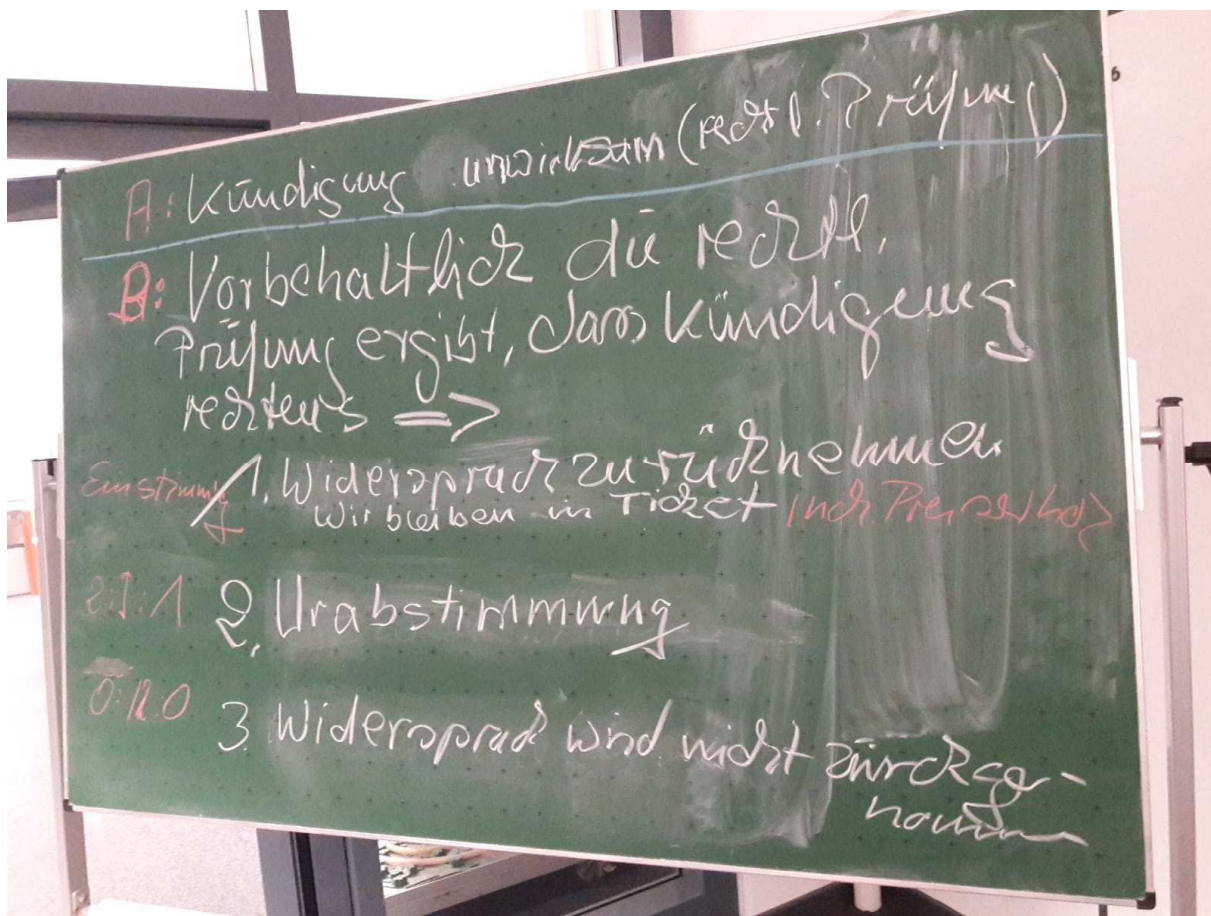 A: Kündigung unwirksam (rechtl. Prüfung)
B: Vorbehaltlich die rechtl.
Prüfung ergibt, dass Kündigung
rechtens =>
Einstimmig 1. Widerspruch zurücknehmen
wir bleiben im Ticket
2. Urabstimmung
3. Widerspruch wird nicht zurückge-
nommen